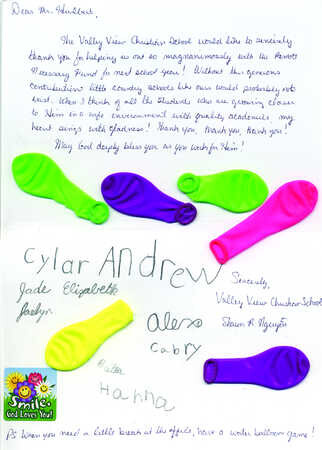 Dear Mr. Hulbert,
The Valley View Christian School would like to sincerely
thank you for helping us out so magnanimously with the Parrott
Necessary Fund for next school year! Without the generous
contributions little country schools like ours would probably not
exist. When I think of all the students who are growing closer
to Him in a safe environment with quality academics, my
heart sings with gladness! Thank you, thank you, thank you!
May God deeply bless you as you work for Him!
Cylar Andrew
Jade Elizabeth
Jaelyn
Alex
Cabry
Hanna
Sincerely,
Valley View Christian School
Shawn R. Nguyen
Smile.
God Loves You!
PS When you need a little break at the office, have a water balloon game!